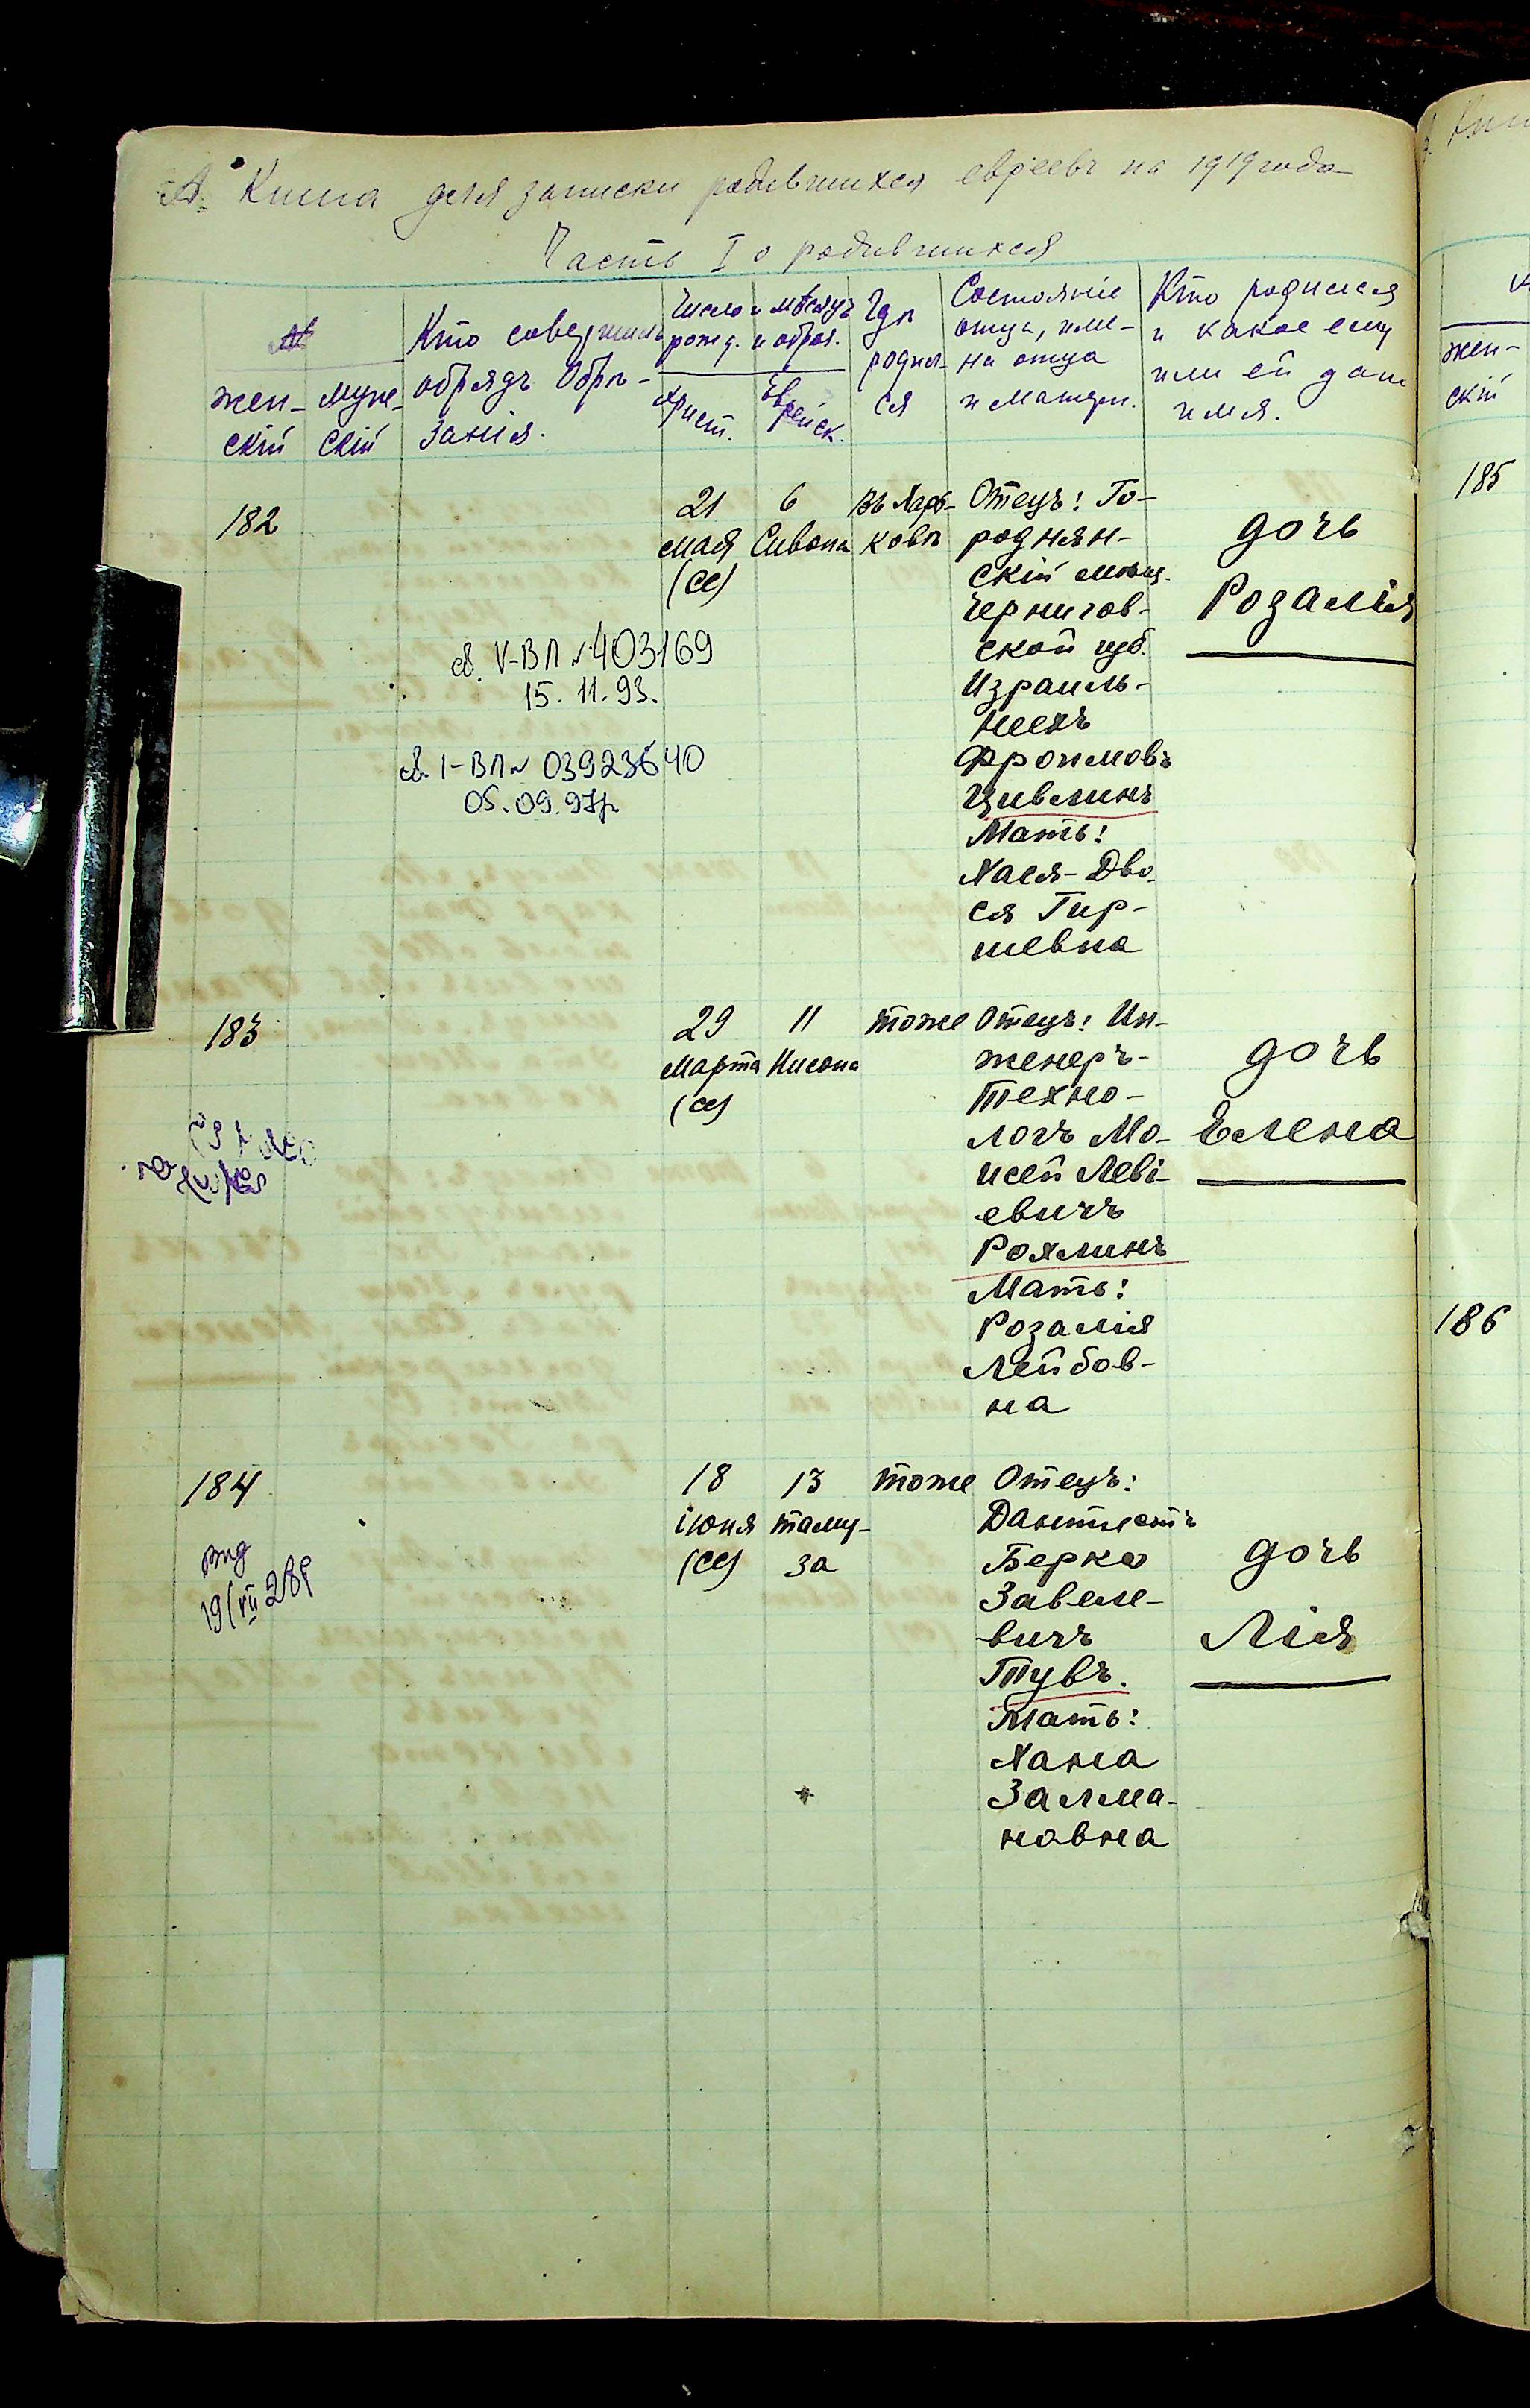 А. Книга для записки родившихся евреевъ на 1919 года
Часть I о родившихся
№
жен-
скій
муже-
скій
Кто совершилъ
обрядъ обрѣ-
занія.
Число и мѣсяцъ
рожд. и обрѣз.
Христ.
Еврейск.
Гдѣ
родил-
ся
Состояніе
отца, име-
на отца
и матери.
Кто родился
и какое ему
или ей дано
имя.
182
21
мая
(СС)
6
Сивона
въ Харь-
ковѣ
Отецъ: Го-
роднян-
скій мѣщ.
Чернигов-
ской губ.
Израиль-
Нехъ
Фроимовъ
Цивлинъ
Мать:
Хася-Дво-
ся Гир-
шевна
дочь
Розалія
св. V-ВЛ № 403169
15. 11. 93.
св. I-ВЛ № 03923640
05. 09. 97р
183
29
Марта
(СС)
11
Нисона
тоже
Отецъ: Ин-
женеръ-
Техно-
логъ Мо-
исей Леві-
евичъ
Рохлинъ
Мать:
Розалія
Лейбов-
на
дочь
Елена
184
18
іюня
(СС)
13
таму-
за
тоже
Отецъ:
Дантистъ
Берко
Завеле-
вичъ
Тувъ.
Мать:
Хана
Залма-
новна
дочь
Лія
жен-
скій
185
186